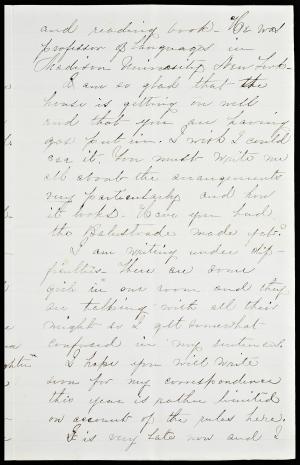 and reading book - He was
professor of Languages in
Madison University New York -
I am so glad that the
house is getting on well
and that you are having
gas put in. I wish I could
see it. You must write me
all about the arrangements
very particularly and how
it looks - Have you had
the Balustrade made yet?
I am writing under dif-
ficulties - There are some
girls in our room and they
are talking with all their
might so I get somewhat
confused in my sentences
I hope you will write
soon for my correspondence
this year is rather limited
on account of the rules here.
It is very late now and I